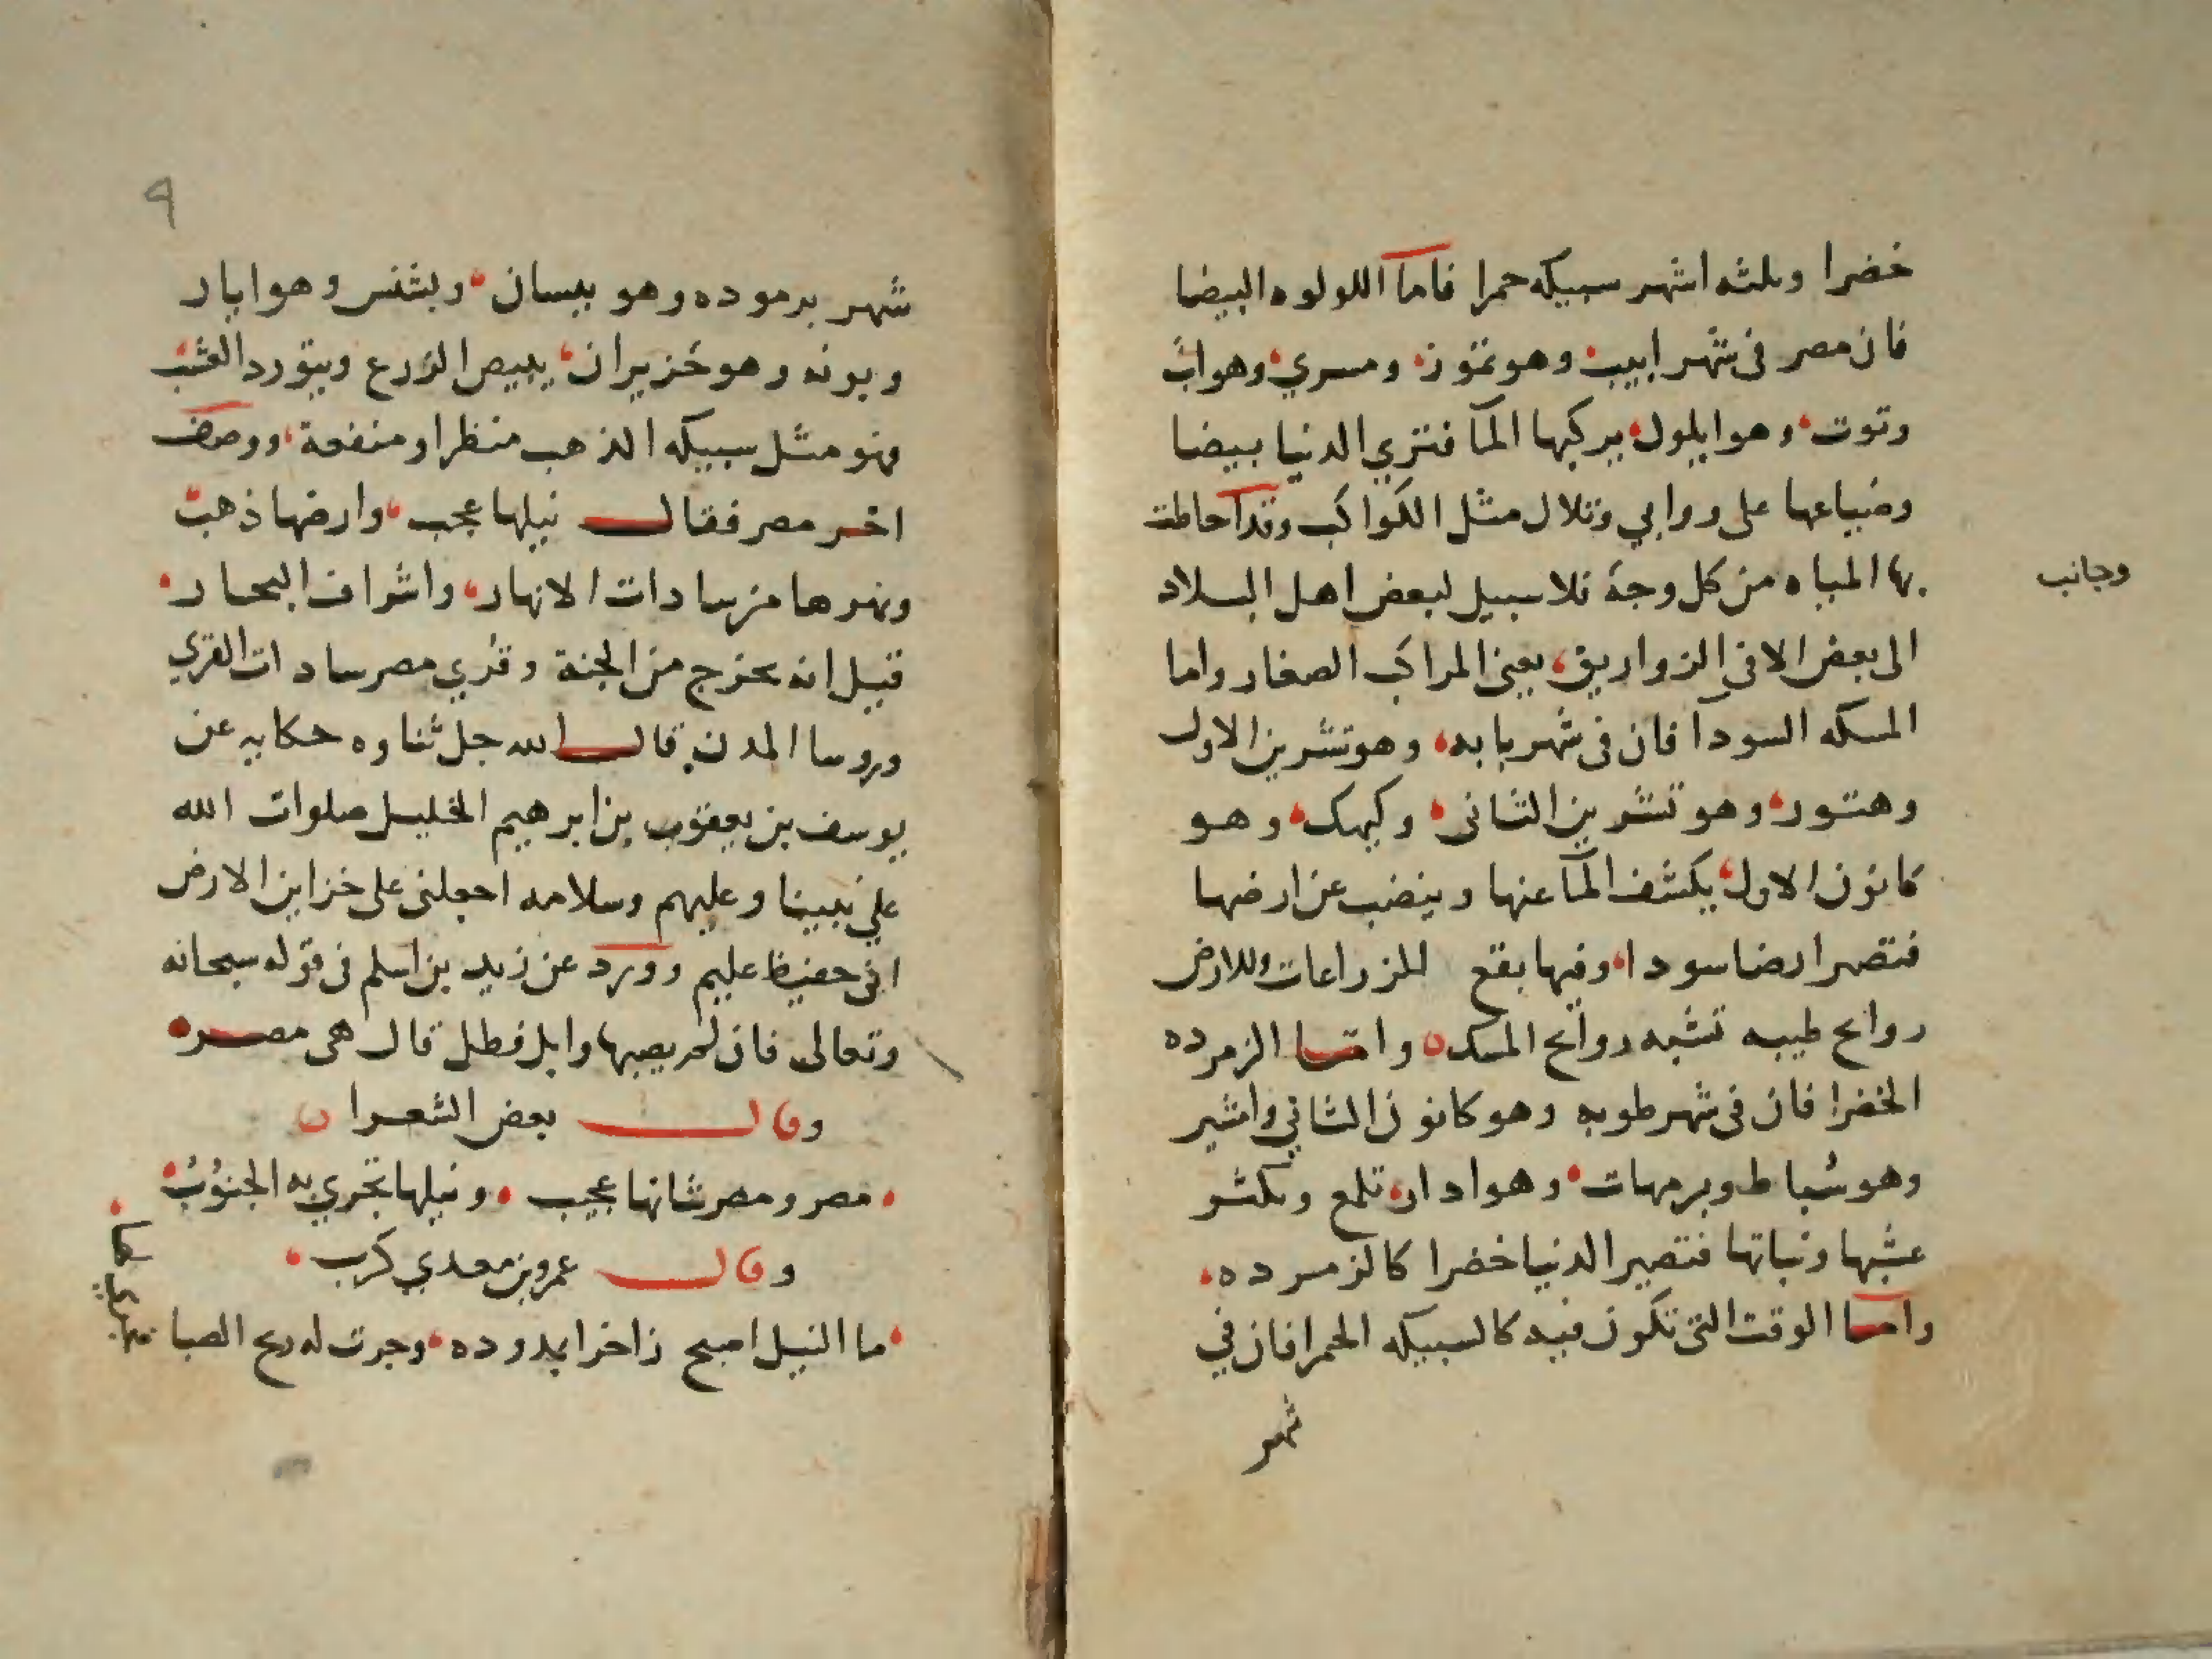 خضرا وثلثه اشهر سبيكه حمرا فاما اللولوه البيضا
فان مصر فى شهر ابيب وهو تموز ومسري وهو اب
وتوت وهو ايلول يركبها المآ فتري الدنيا بيضا
وضياعها على روابي وتلال مثل الكواكب وقد احاطت
بها المياه من كل وجه فلا سبيل لبعض اهل البلاد
وجانب
الى بعض الا فى الزواريق يعنى المراكب الصغار واما
المسكه السودآ فان فى شهر بابه وهو تشرين الاول
وهتور وهو تشرين الثانى وكيهك وهو
كانون الاول يكشف المآ عنها وينضب عن ارضها
فتصير ارضا سودا وفيها بقع المزراعات وللارض
روايح طيبه تشبه روايح المسك واما الزمرده
الخضرا فان فى شهر طوبه وهو كانون الثاني وامشير
وهو شباط وبرمهات وهو ادار تلمع ويكثر
عشبها ونباتها فتصير الدنيا خضرا كالزمرده
واما الوقت التى تكون فيه كالسبيكه الحمرا فان في
شهر
٩
شهر برموده وهو نيسان وبشنس وهو ايار
وبونه وهو حزيران يبيض الزرع ويتورد العشب
فهو مثل سبيكه الذهب منظرا ومنفعة ووصف
اخر مصر فقال نيلها عجب وارضها ذهب
ونهرها من سادات الانهار واشراف البحار
قيل انه يخرج من الجنة وقري مصر سادات القري
وروسا المدن قال الله جل ثناوه حكايه عن
يوسف بن يعقوب بن ابرهيم الخليل صلوات الله
علي نبينا وعليهم وسلامه اجعلنى على خزاين الارض
انى حفيظ عليم وورد عن زيد بن اسلم فى قوله سبحانه
وتعالى فان لم يصبها وابل فطل قال هى مصر
وقال بعض الشعرا
مصر ومصر شانها عجيب ونيلها تجري به الجنوب
وقال عمرو بن معدي كرب
ما النيل اصبح زاخرا بمدوده وجرت له ريح الصبا